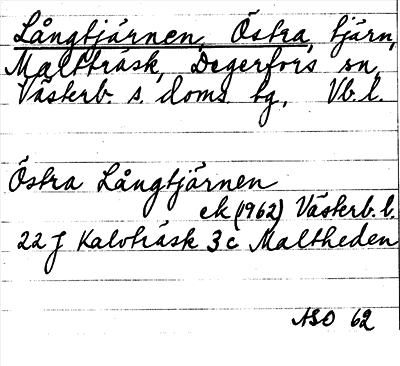 Långtjärnen, Östra, tjärn,
Maltträsk, Degerfors sn,
Västerb. s. doms. tg, Vb.l.
Östra Långtjärnen
ek (1962) Västerb.l.
22 J Kalvträsk 3 c Maltheden
ASO 62